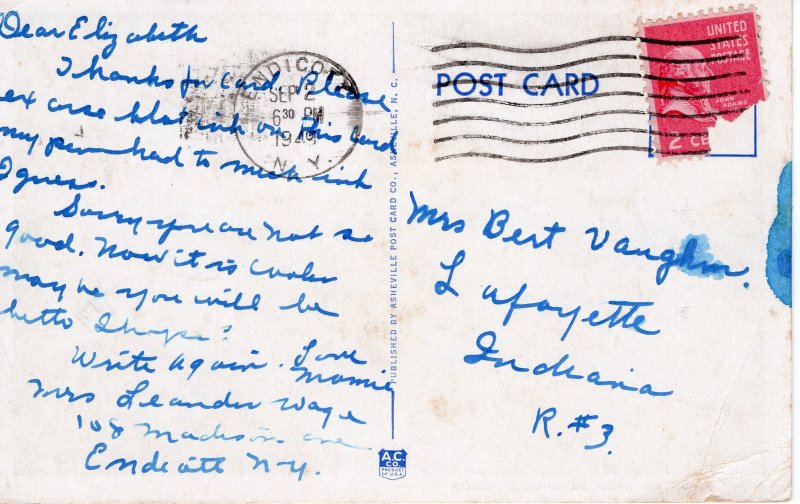 Dear Elizabeth
Thanks for card. Please
ex cuse blot ink on this card
my pen had to much ink
I guess.
Sorry you are not so
good. Now it is cooler
may be you will be
better I hope?
Write again. Love
Mamie
Mrs Leander Wage
108 Madison ave.
Endicott N.Y.
ENDICOTT
SEP 2
6 30 PM
1949
N.Y.
PUBLISHED BY ASHEVILLE POST CARD CO., ASHEVILLE, N. C.
A.C.
CO.
PRODUCT
OF U.S.A.
POST CARD
UNITED
STATES
POSTAGE
JOHN
ADAMS
2 CE
Mrs Bert Vaughn.
Lafayette
Indiana
R. #3.